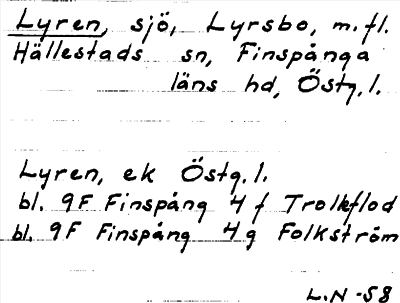 Lyren, sjö, Lyrsbo, m.fl.
Hällestads sn, Finspånga
läns hd, Östg.l.
Lyren, ek Östg.l.
bl. 9F Finspång 4f Trolkflod
bl. 9F Finspång 4g Folkström
L.N-58